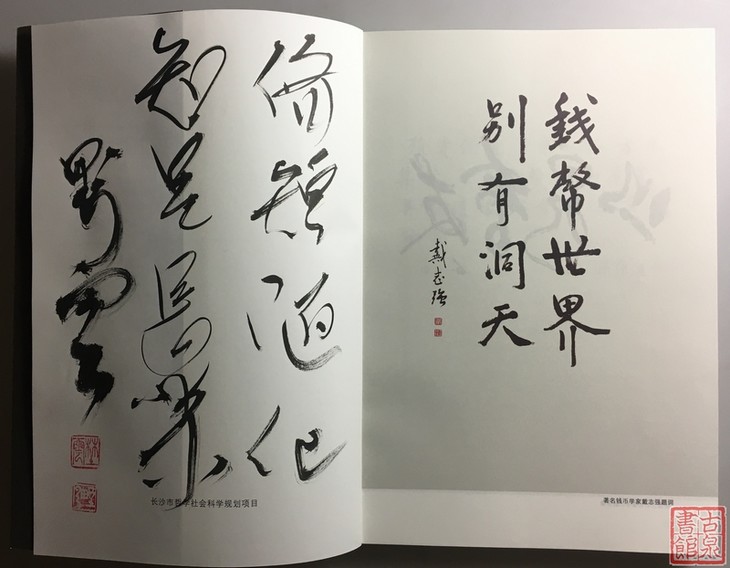 脩短随化
知足
野雲
长沙市哲学社会科学规划项目
錢幣世界
别有洞天
戴志强
著名钱币学家戴志强题词
古泉書館